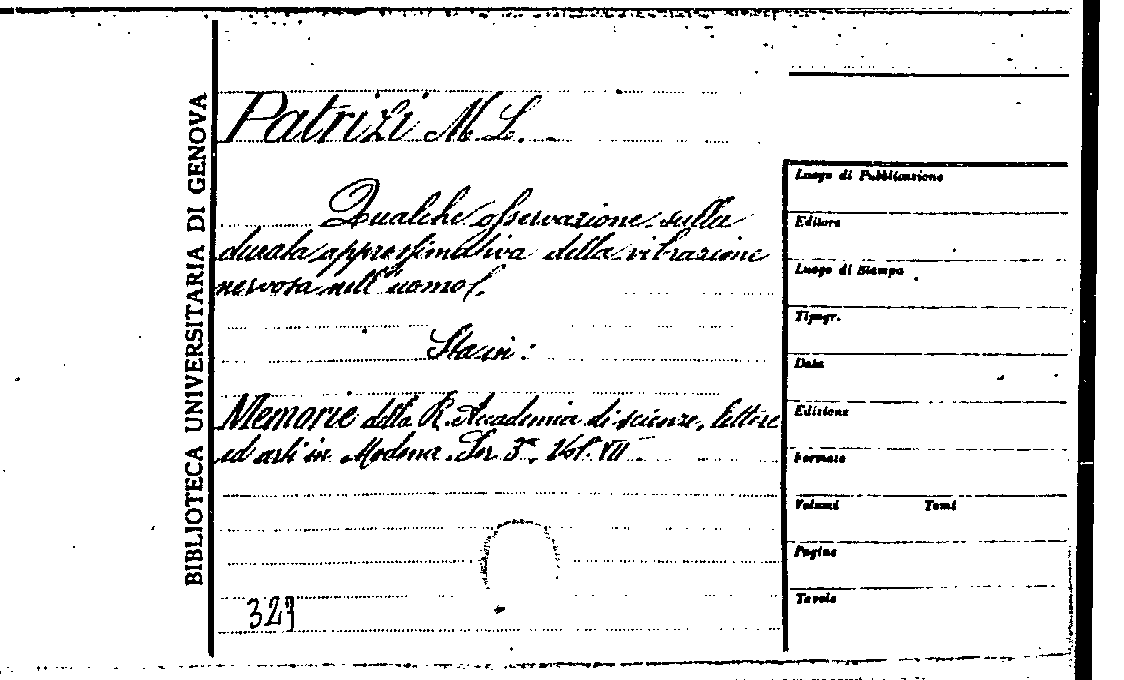 BIBLIOTECA UNIVERSITARIA DI GENOVA
Patrizi M. L.
Qualche osservazione sulla
durata approssimativa della vibrazione
nervosa nell'uomo.
Sta in:
Memorie della R. Accademia di scienze, lettere
ed arti in Modena. Ser 3ª. Vol. VII
327
Luogo di Pubblicazione
Editore
Luogo di Stampa
Tipogr.
Data
Edizione
Formato
Volumi Tomi
Pagine
Tavole